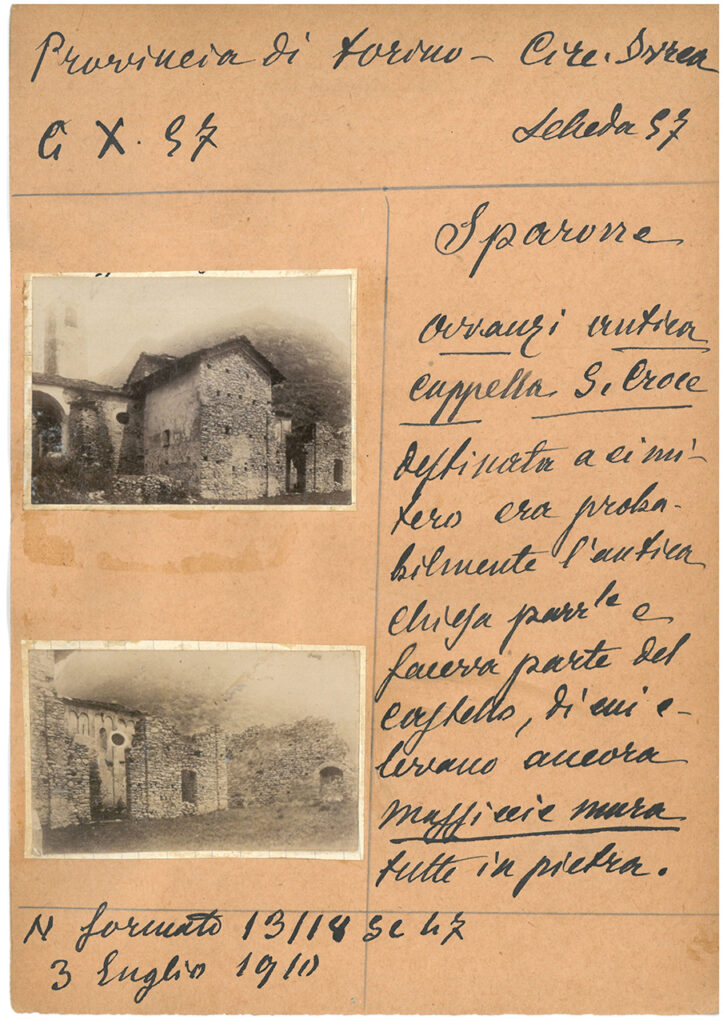 Provincia di Torino - Circ. Ivrea
G X. 57
Scheda 57
Sparone
Avvanzi antica
cappella S. Croce
destinata a cimi-
tero era proba-
bilmente l'antica
chiesa parr.le e
faceva parte del
castello, di cui e-
levano ancora
massiccie mura
tutte in pietra.
N formato 13/18
3 Luglio 1910